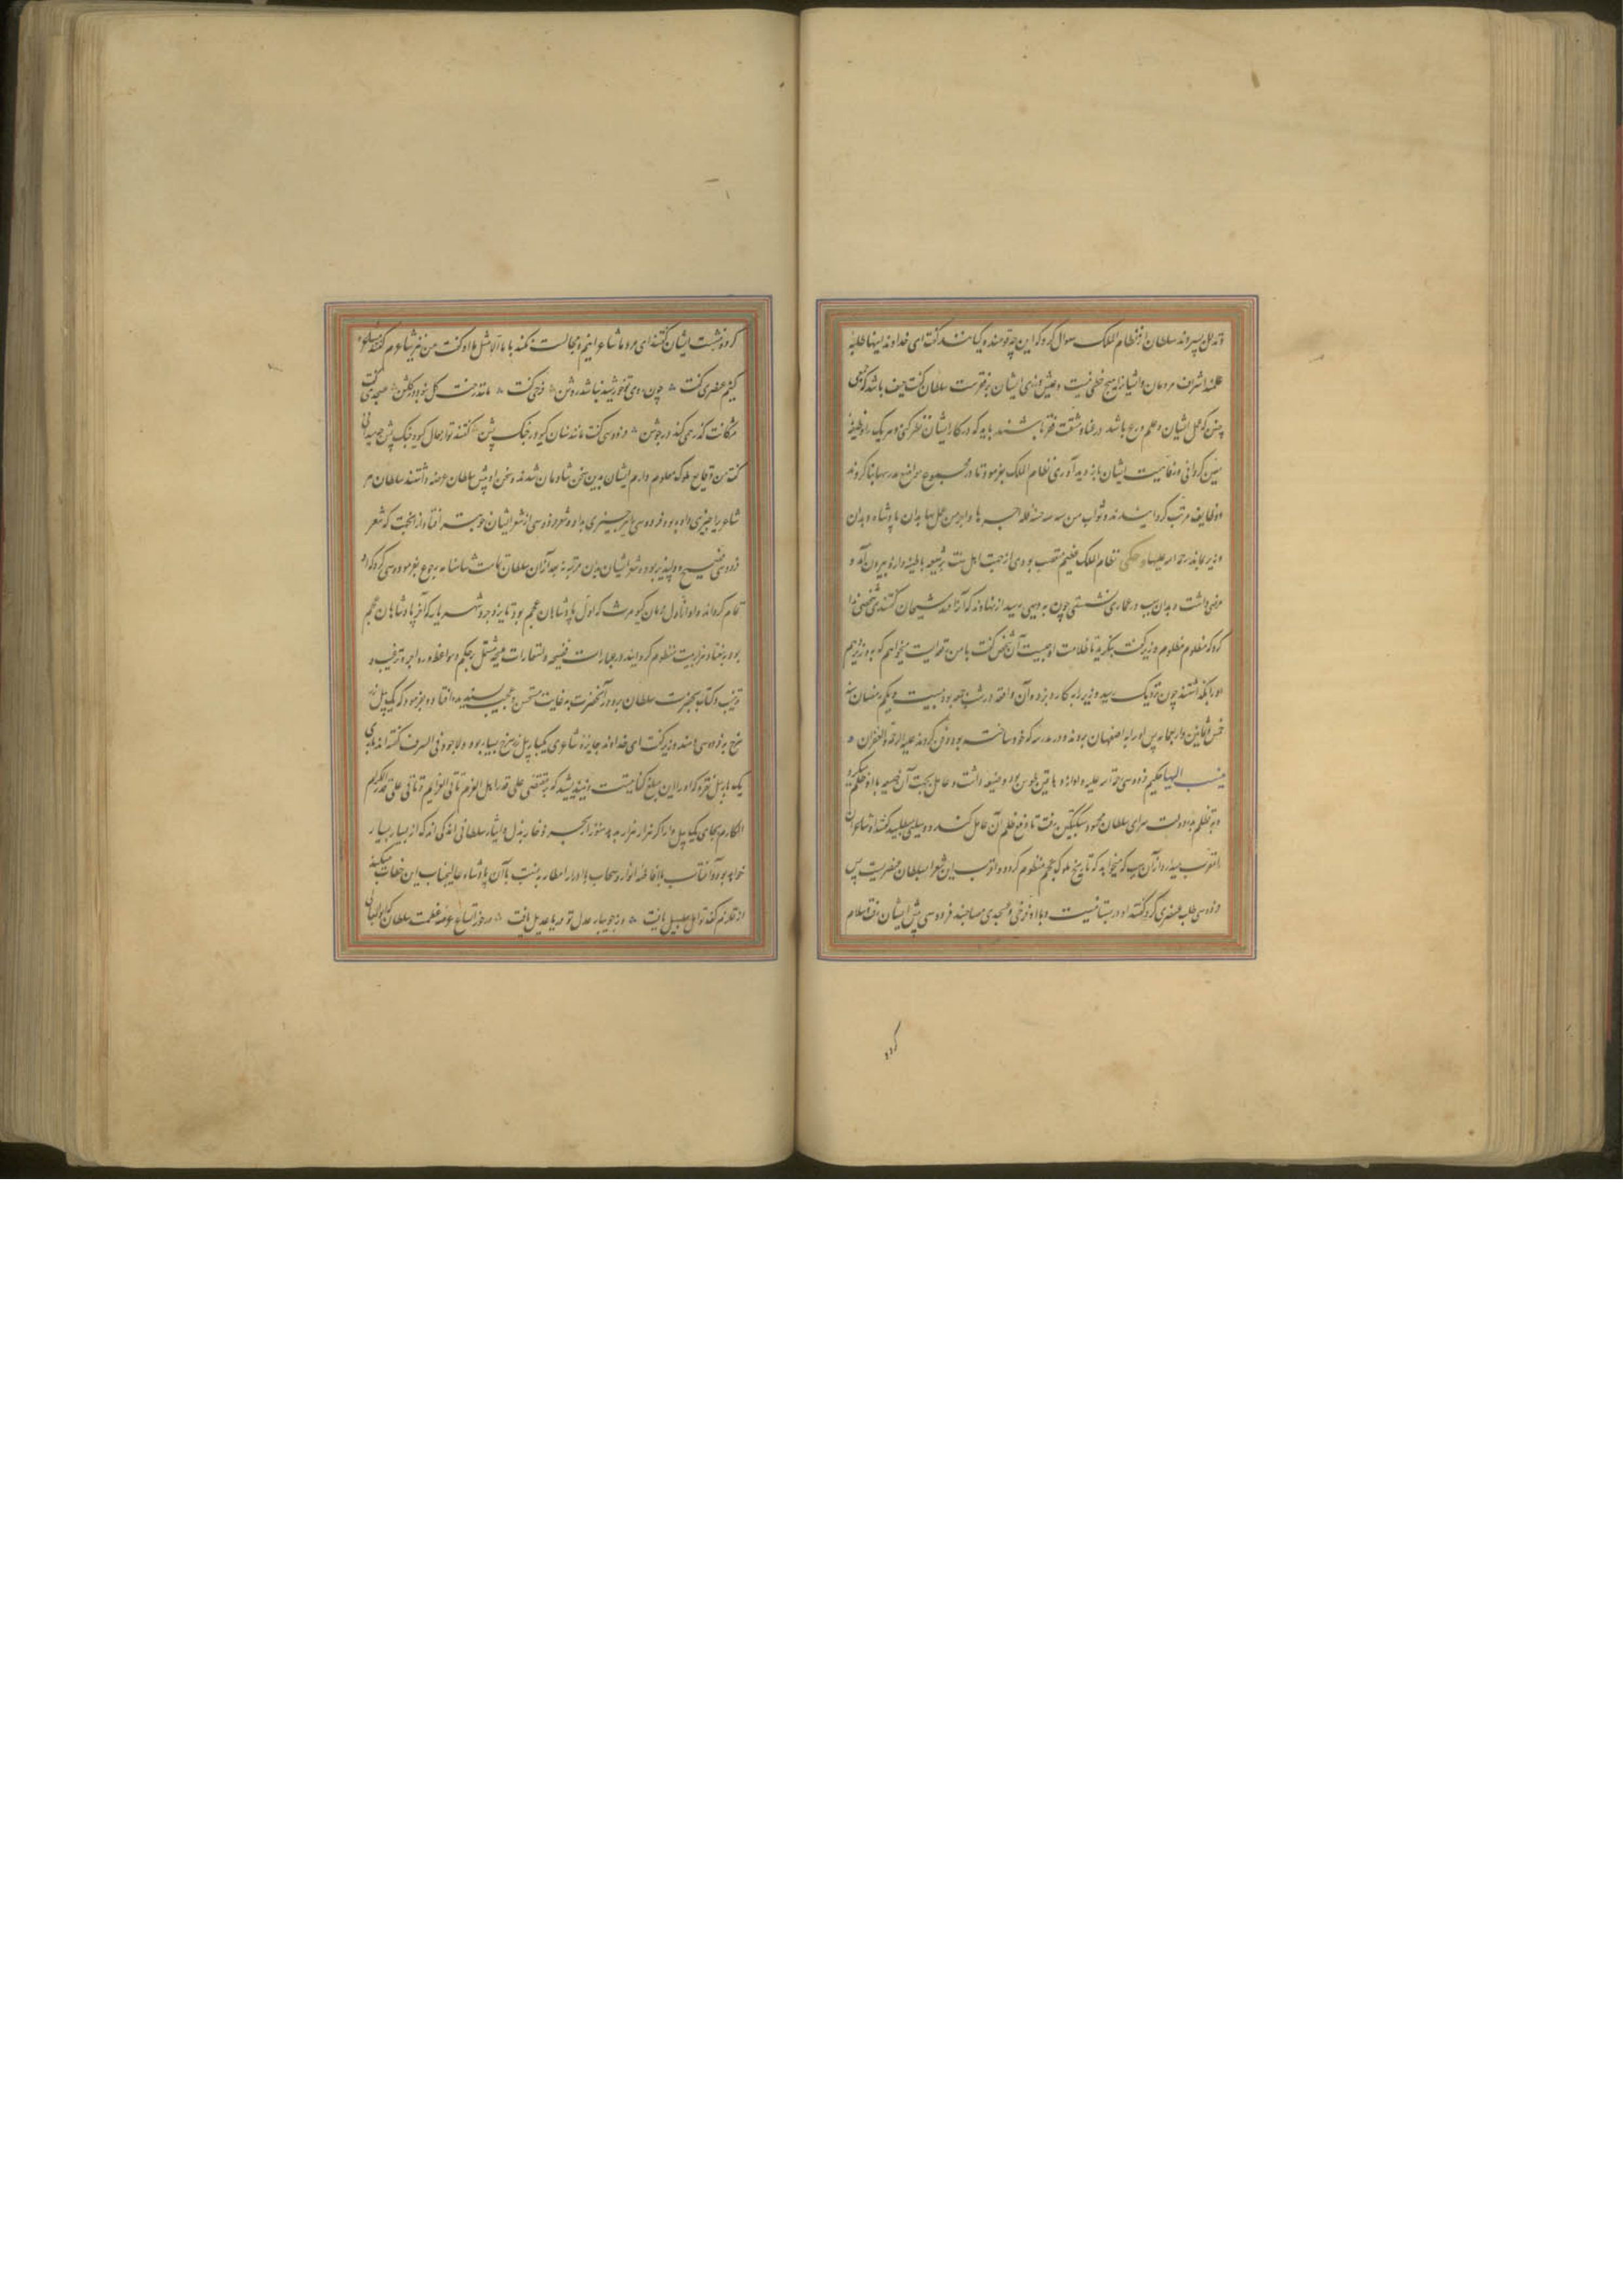 و تذلل سپردند سلطان از نظام الملک سوال کرد که این چه قومند و کیانند گفت ای خداوند اینها طلبهٔ
علمند اشراف مردمان و ایشانرا هیچ حظی نیست و عیش ایشان بر فقرست سلطان گفت حیف باشد که جمعی
چنین که عمل ایشان و علم و ورع باشد در عنا و مشقت فقر باشند باید که در کار ایشان نظر کنی و هریک را وظیفهٔ
معین گردانی و رفاهیت ایشان بازدید آوری نظام الملک بفرمود تا در مجموع مواضع مدرسها بنا کردند
و وظایف مرتب گردانیدند و ثواب من سن سنة حسنة فله اجرها و اجر من عمل بها بدان پادشاه و بدان
وزیر بماند رحمة الله علیهما و حکی نظام الملک متعصب بودی از جهت اهل سنت بر شیعه باطنیه و از بیرون آمد و
مرضی داشت و بدان سبب در عماری نشستی چون به دیهی رسید از نهاوند که آنرا گفتندی شخصی ندا
کرد که مظلوم مظلوم وزیر گفت بنگرید تا ظلامت او چیست آن شخص گفت با من قصه ایست میخواهم که بدو وزیر دهم
او را بگذاشتند چون نزدیک رسید وزیر را به کارد بزد و آن واقعه در شب جمعه بود بیست و یکم رمضان سنه
خمس و ثمانین و اربعمایه پس او را به اصفهان بردند و در مدرسه که خود ساخته بود دفن کردند علیه الرحمة و الغفران و
ینسب الیها حکیم فردوسی رحمة الله علیه و او از دهاقین طوس بود و ضیعه داشت و عامل بجهت آن ضیعه با او ظلم میکرد
و به تظلم بدار دولت سرای سلطان محمود سبکتگین رفت تا دفع ظلم آن عامل کند و وسیلتی میطلبید گفتند او شاعران
مقرب میدارد از آن سبب که میخواهد که تاریخ ملوک عجم منظوم گردد و اقرب این شعرا به سلطان عنصریست پس
فردوسی طلب عنصری کرد گفتند او در بستانیست و با او فرخی و عسجدی مصاحبند فردوسی پیش ایشان رفت و سلام
کرد
کرد و بنشست ایشان گفتند ای مرد ما شاعرانیم و مجالست نکند با ما الا مثل ما او گفت من نیز شاعرم گفتند
گوییم عنصری گفت چون روی تو خورشید نباشد روشن فرخی گفت مانند رخت گل نبود در گلشن عسجدی گفت
مژگانت گذر همی کند در جوشن فردوسی گفت مانند سنان گیو در جنگ پشن گفتند تو از حال گیو و جنگ پشن چه میدانی
گفت من وقایع ملوک معلوم دارم ایشان بدین سخن شادمان شدند و سخن او پیش سلطان عرضه داشتند سلطان هر
شاعر را چیزی داده بود فردوسی را هم چیزی بداد و شعر فردوسی از شعر ایشان خوبتر افتاد از جهت که شعر
فردوسی فصیح و دلپذیر بود و شعر ایشان بدان مرتبه نه بعد از آن سلطان تمامت شاهنامه رجوع بفردوسی کرد که او
تمام گرداند و او از اول زمان کیومرث که اول پادشاهان عجم بود تا یزدجرد شهریار که آخر پادشاهان عجم
بود به هفتاد هزار بیت منظوم گردانید در عبارات فصیحه و استعارات ملیحه مشتمل بر حکم و مواعظ و زواجر و ترغیب و
ترهیب و کتاب بحضرت سلطان برد و در آنحضرت به غایت مستحسن و عجیب پسندیده افتاد و بفرمود که یک پیل زر
سرخ به فردوسی دهند وزیر گفت ای خداوند جایزه شاعری یکبار پیل زر سرخ بسیار بود و لا جود فی السرف گفته اند باید
یک بار پیل نقره که او را این مبلغ کفایتست و نیندیشید که بمقتضی علی قدر اهل العزم تاتی العزایم و تاتی علی قدر الکرام
المکارم بجای یک پیل وار اگر هزار هزار بدهد هنوز از بحر زخار بذل و ایثار سلطانی اندکی اند که از بسیار بسیار
خواهد بود و آفتاب با افاضهٔ انوار و سحاب با ادرار امطار به نسبت با آن پادشاه عالیجناب این خطاب میکنند
از تکرم کف تو اهل سلسبیل یافت وز جویبار عدل تو دریا عدیل یافت در خور اتساع عرصه عظمت سلطان